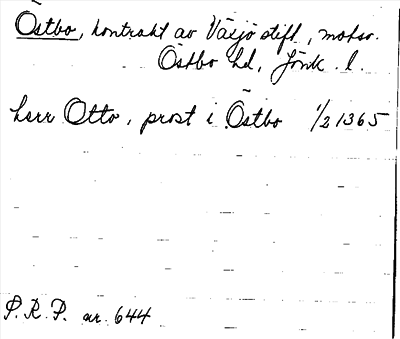 Östbo, kontrakt av Växjö stift, motsv.
Östbo hd, Jönk. l.
herr Otto, prost i Östbo 1/2 1365
P.R.P. nr. 644